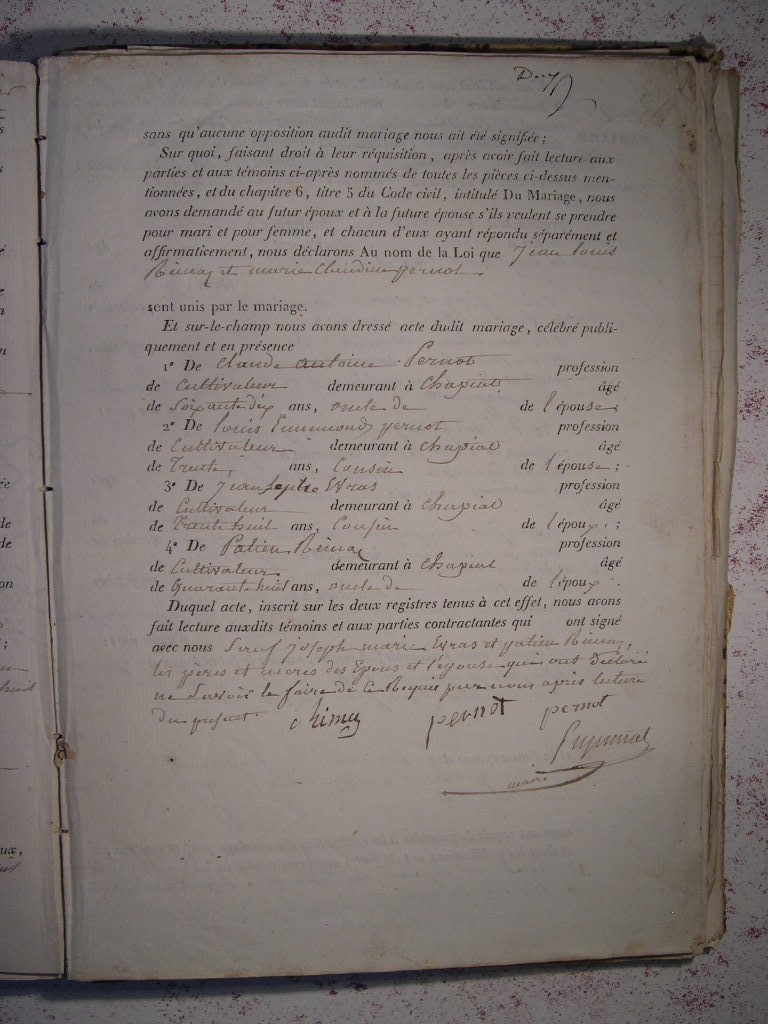 sans qu'aucune opposition audit mariage nous ait été signifiée ;
Sur quoi, faisant droit à leur réquisition, après avoir fait lecture aux
parties et aux témoins ci-après nommés de toutes les pièces ci-dessus men-
tionnées, et du chapitre 6, titre 5 du Code civil, intitulé Du Mariage, nous
avons demandé au futur époux et à la future épouse s'ils veulent se prendre
pour mari et pour femme, et chacun d'eux ayant répondu séparément et
affirmativement, nous déclarons Au nom de la Loi que Jean louis
et marie Claudine pernot
sont unis par le mariage.
Et sur-le-champ nous avons dressé acte dudit mariage, célébré publi-
quement et en présence
1° De Claude antoine Pernot profession
de Cultivateur demeurant à Chapiat âgé
de Soixante dix ans, oncle de de l'épouse ;
2° De louis Ennemond pernot profession
de Cultivateur demeurant à chapiat âgé
de Trente ans, Cousin de l'épouse ;
3° De Jean profession
de Cultivateur demeurant à chapiat âgé
de Trente huit ans, Cousin de l'époux ;
4° De Patien profession
de Cultivateur demeurant à chapiat âgé
de quarante huit ans, oncle de de l'époux .
Duquel acte, inscrit sur les deux registres tenus à cet effet, nous avons
fait lecture auxdits témoins et aux parties contractantes qui ont signé
avec nous Sauf Joseph marie et patien
les pères et mères des Epoux et l'épouse qui ont déclaré
ne Savoir le faire de ce Requis par nous après lecture
du présent.
pernot pernot
maire